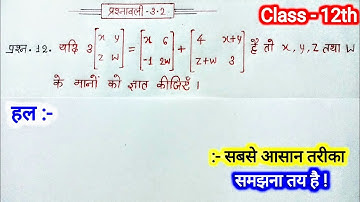 प्रश्नावली-3.2
Class - 12th
प्रश्न. 12. यदि 3 [x y z w] = [x 6 -1 2w] + [4 x+y z+w 3] है तो x, y, z तथा w
के मानों को ज्ञात कीजिएँ।
हल :-
:- सबसे आसान तरीका
समझना तय है !